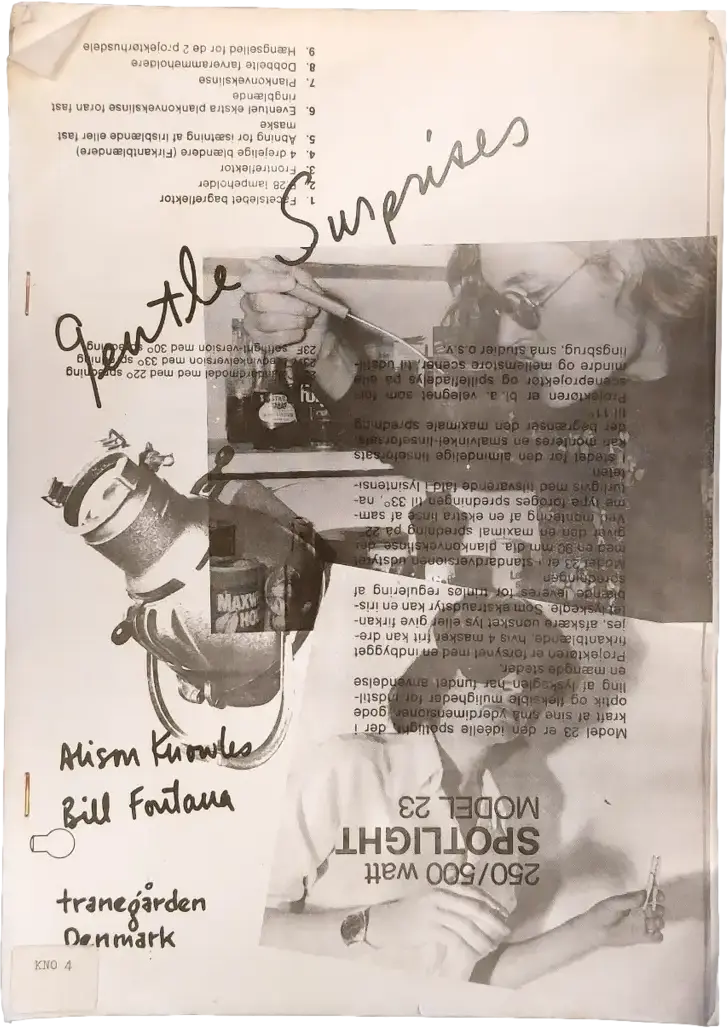 Gentle Surprises
Alison Knowles
Bill Fontana
tranegården
Denmark
KNO 4
MAXW
HO
1. Facetslebet bagreflektor
2. P 28 lampeholder
3. Frontreflektor
4. 4 drejelige blændere (Firkantblændere)
5. Åbning for isætning af irisblænde eller fast
maske
6. Eventuel ekstra plankonvekslinse foran fast
ringblænde
7. Plankonvekslinse
8. Dobbelte farverammeholdere
9. Hængselled for de 2 projektørhusdele
250/500 watt
SPOTLIGHT
MODEL 23
Model 23 er den ideelle spotlight, der i
kraft af sine små yderdimensioner, gode
optik og fleksible muligheder for indstil-
ling af lyskeglen har fundet anvendelse
en mængde steder.
Projektøren er forsynet med en indbygget
firkantblænde, hvis 4 masker frit kan dre-
jes, afskære uønsket lys eller give firkan-
tet lyskegle. Som ekstraudstyr kan en iris-
blænde leveres for trinløs regulering af
spredningen
Model 23 er i standardversionen udstyret
med en 90 mm dia. plankonvekslinse, der
giver den en maximal spredning på 22°
Ved montering af en ekstra linse af sam-
me type forøges spredningen til 33°, na-
turligvis med tilsvarende fald i lysintensi-
teten
I stedet for den almindelige linseforsats
kan monteres en smalvinkel-linseforsats,
der begrænser den maximale spredning
til 11°
Projektøren er bl. a. velegnet som for-
sceneprojektør og spilflade lys på alle
mindre og mellemstore scener, til udstil-
lingsbrug, små studier o.s.v.
standardmodel med 22° spredning
bredvinkelversion med 33° spredning
23F softlight-version med 30° spredning